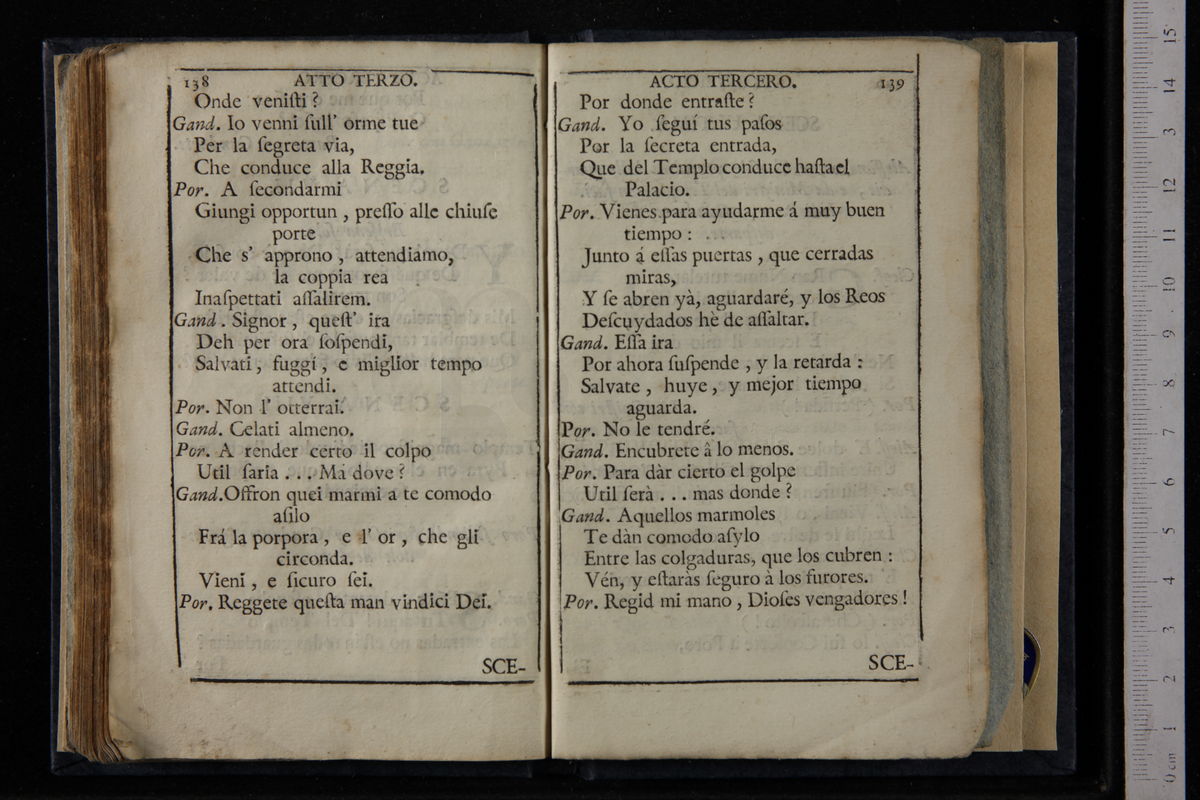 138 ATTO TERZO.
Onde veniſti ?
Gand. Io venni ſull' orme tue
Per la ſegreta via,
Che conduce alla Reggia.
Por. A ſecondarmi
Giungi opportun , preſſo alle chiuſe
porte
Che s' approno , attendiamo,
la coppia rea
Inaſpettati aſſalirem.
Gand . Signor , queſt' ira
Deh per ora ſoſpendi,
Salvati , fuggi , e miglior tempo
attendi.
Por. Non l' otterrai.
Gand. Celati almeno.
Por. A render certo il colpo
Util ſaria . . . Má dove ?
Gand. Offron quei marmi a te comodo
aſilo
Frá la porpora , e l' or , che gli
circonda.
Vieni , e ſicuro ſei.
Por. Reggete queſta man vindici Dei.
SCE-
ACTO TERCERO. 139
Por donde entraſte ?
Gand. Yo ſeguí tus paſos
Por la ſecreta entrada,
Que del Templo conduce haſta el
Palacio.
Por. Vienes para ayudarme á muy buen
tiempo :
Junto á eſſas puertas , que cerradas
miras,
Y ſe abren yà, aguardaré, y los Reos
Deſcuydados hè de aſſaltar.
Gand. Eſſa ira
Por ahora ſuſpende , y la retarda :
Salvate , huye , y mejor tiempo
aguarda.
Por. No le tendré.
Gand. Encubrete â lo menos.
Por. Para dàr cierto el golpe
Util ſerà . . . mas donde ?
Gand. Aquellos marmoles
Te dàn comodo aſylo
Entre las colgaduras, que los cubren :
Vén, y eſtaràs ſeguro à los furores.
Por. Regid mi mano , Dioſes vengadores !
SCE-
0 cm 1 2 3 4 5 6 7 8 9 10 11 12 13 14 15